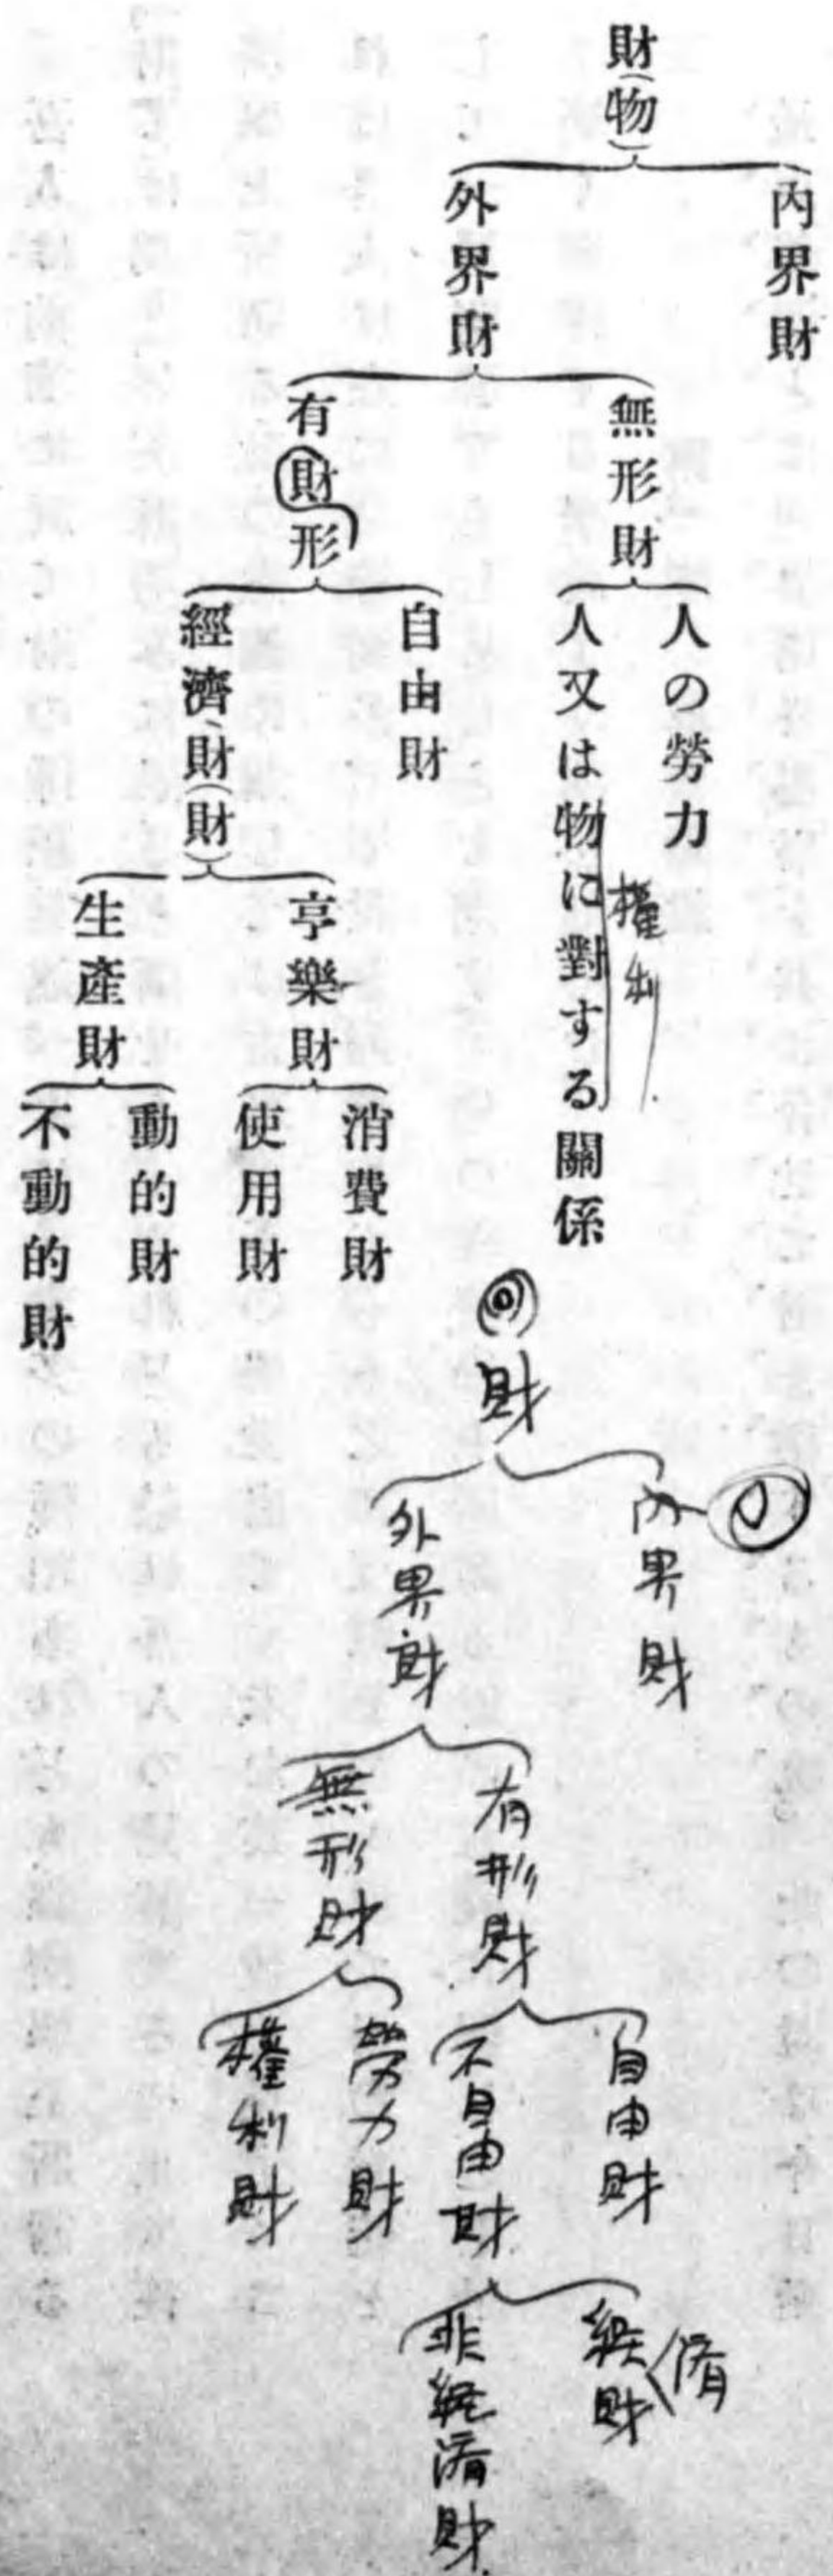 財(物)
內界財
外界財
無形財
人の勞力
人又は物に對する關係
權利
有財形
自由財
經濟財(財)
享樂財
消費財
使用財
生產財
動的財
不動的財
財
內界財
外界財
有形財
自由財
不自由財
経財
済
非経済財
無形財
勞力財
權利財